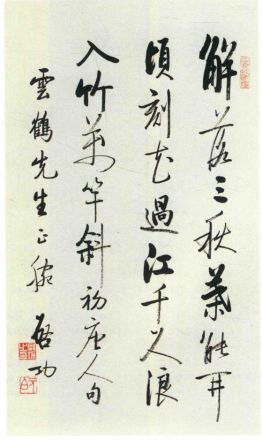 解落三秋葉能开
頃刻花過江千尺浪
入竹萬竿斜初唐人句
雲鶴先生正腕 啓功